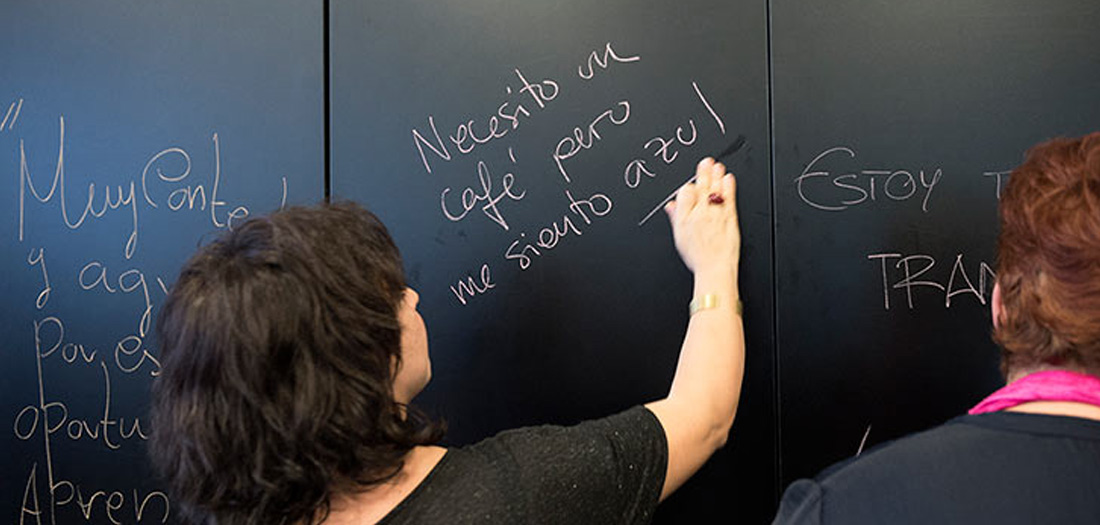 "Muy Conte
y agr
por es
oportu
Apren
Necesito un
café pero
me siento azul
ESTOY T
TRAN